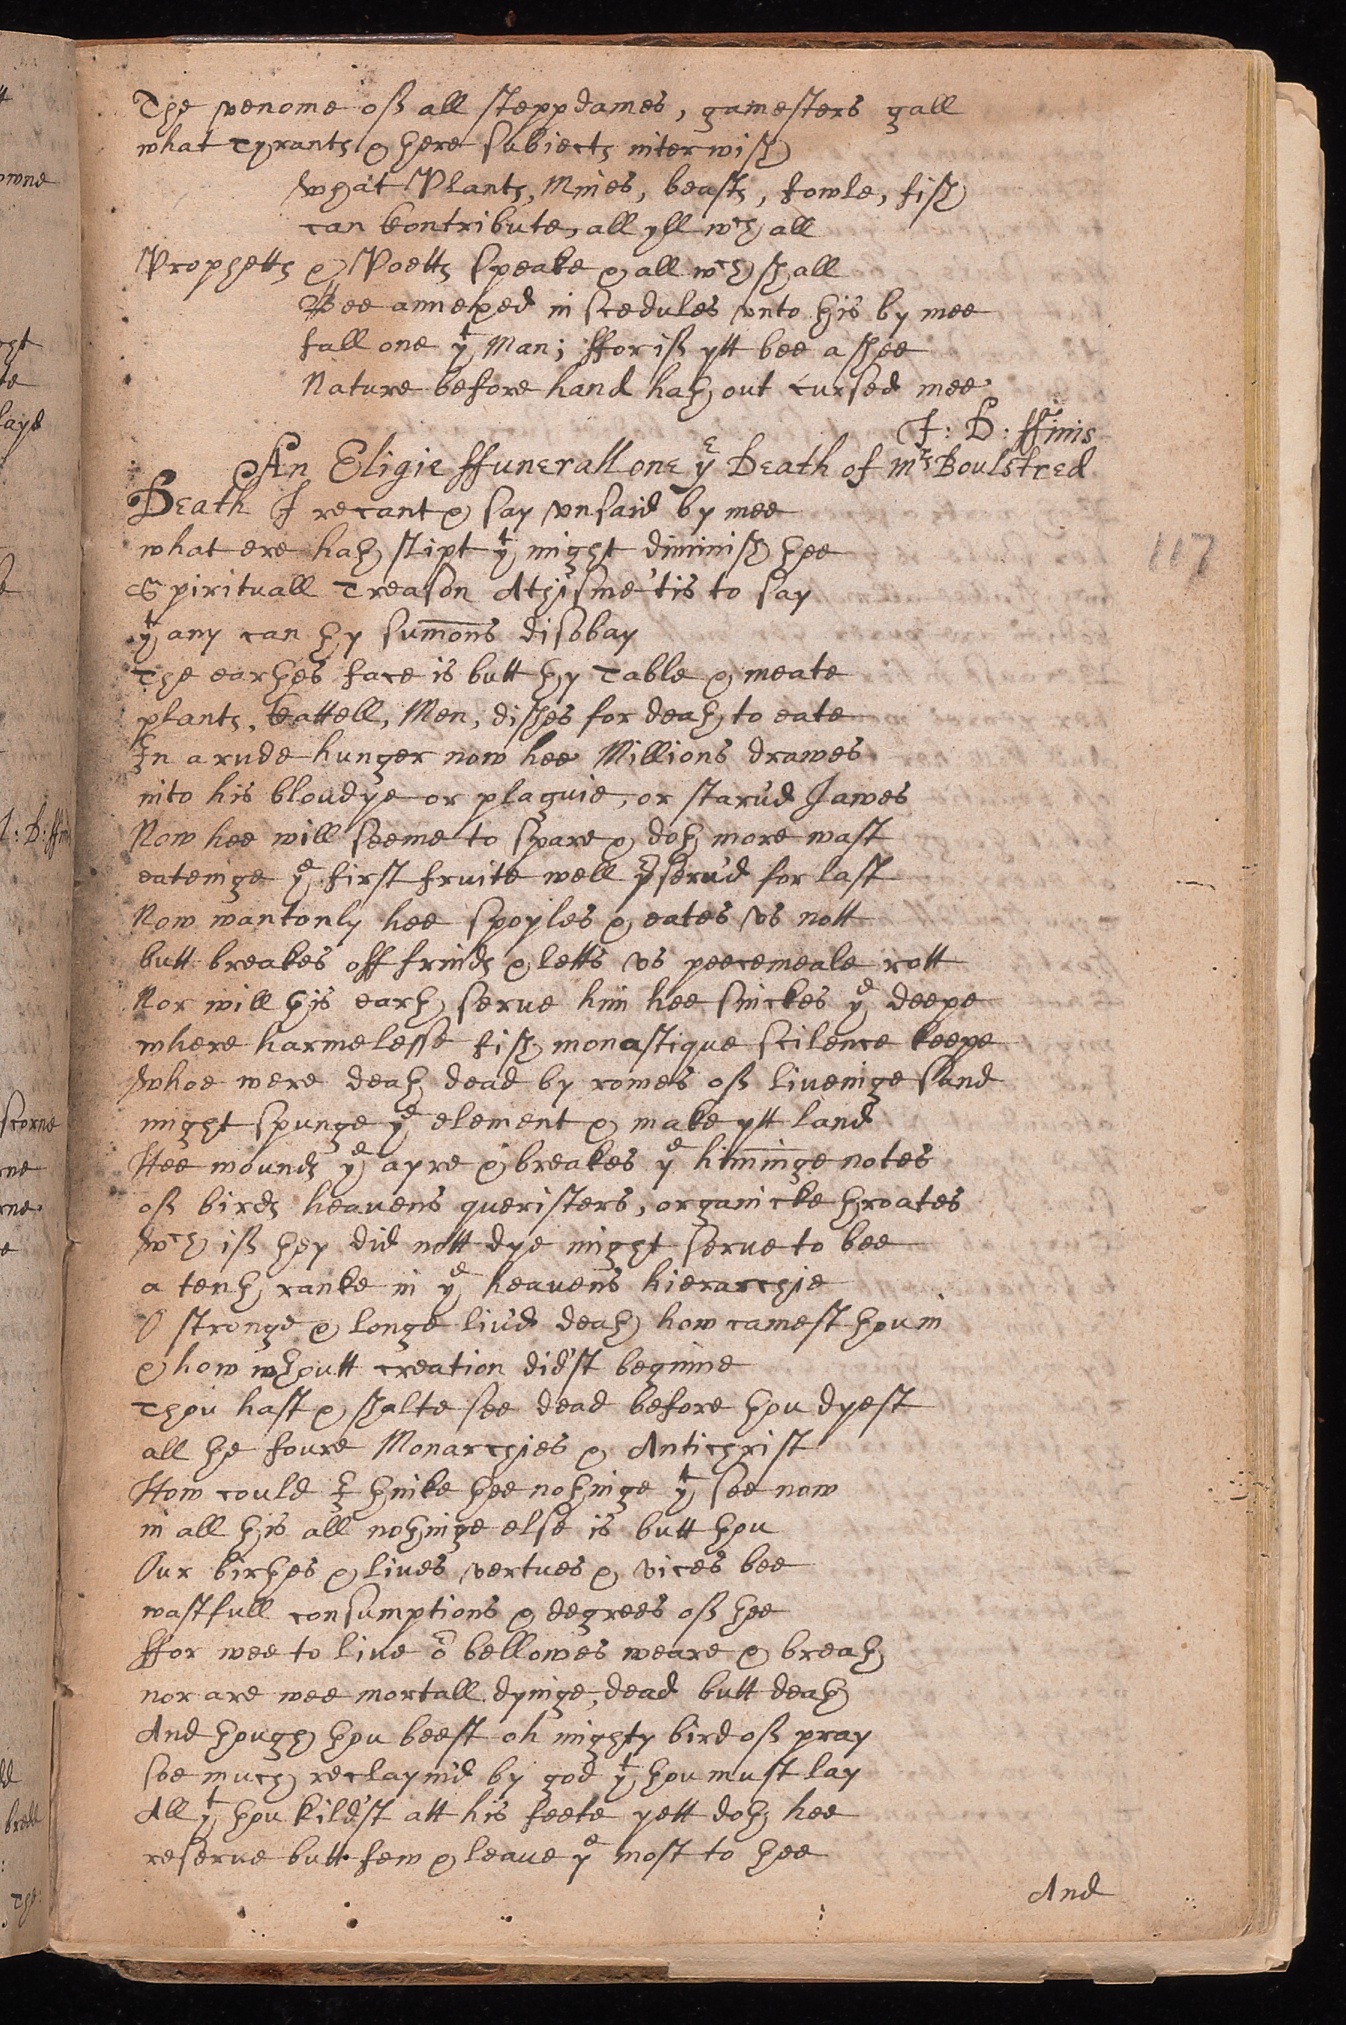 The venome off all steppdames, gamesters gall
what Tyrants & there subiects interwish
what Plants, Mines, beasts, fowle, fish
can kontribute, all yll wch all
Prophetts & Poetts speake & all wch shall
Bee annexed in scedules vnto this by mee
fall one yt Man; ffor iff ytt bee a shee
Nature before hand hath out cursed mee
J: D: ffinis
An Eligie ffunerall one ye Death of Mrs Boulstred
Death I recant & say vnsaid by mee
what ere hath slipt yt might diminish thee
Spirituall Treason Athisme 'tis to say
yt any can thy sum̄ons disobay
The earthes face is butt thy Table & meate
plants, kattell, Men, dishes for death to eate
In a rude hunger now hee Millions drawes
into his bloudye or plaguie, or staru'd Jawes
Now hee will seeme to spare & doth more wast
eateinge ye first fruite well p̄seru'd for last
Now wantonly hee spoyles & eates vs nott
butt breakes off frinds & letts vs peecemeale rott
Nor will this earth serue him hee sinckes ye deepe
where harmelesse fish monastique scilence keepe
whoe were death dead by romes off liueinge sand
might spunge ye element & make ytt land
Hee wounds ye ayre & breakes ye him̄inge notes
off birds heauens queristers, organicke throates
wch iff they did nott dye might serue to bee
a tenth ranke in ye heauens hierarchie
O stronge & longe liu'd death how camest thou in
& how wthoutt creation did'st beginne
Thou hast & shalte see dead before thou dyest
all the foure Monarchies & Antichrist
How could I thinke thee nothinge yt see now
in all this all nothinge else is butt thou
Our birthes & liues vertues & vices bee
wastfull consumptions & degrees off thee
ffor wee to liue o͡ bellowes weare & breath
nor are wee mortall dyinge, dead butt death
And though thou beest oh mighty bird off pray
soe much reclaym'd by god yt thou must lay
All yt thou kild'st att his feete yett doth hee
reserue butt few & leaue ye most to thee
And
117